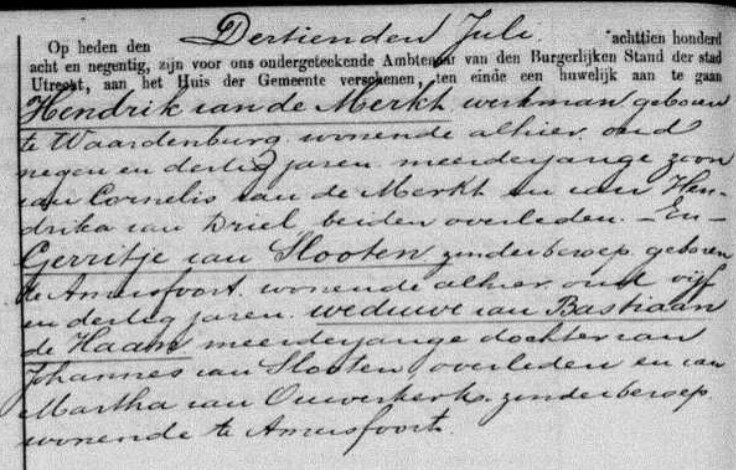 Op heden den Dertienden Juli achttien honderd
acht en negentig, zijn voor ons ondergeteekende Ambtenaar van den Burgerlijken Stand der stad
Utrecht, aan het Huis der Gemeente verschenen, ten einde een huwelijk aan te gaan
Hendrik van de Merkt werkman geboren
te Waardenburg wonende alhier oud
negen en dertig jaren meerderjarige zoon
van Cornelis van de Merkt en van Hen-
drika van Driel, beiden overleden. — En —
Gerritje van Slooten zonder beroep geboren
te Amersfoort wonende alhier oud vijf
en dertig jaren weduwe van Bastiaan
de Haan meerderjarige dochter van
Johannes van Slooten overleden en van
Martha van Ouwerkerk, zonder beroep
wonende te Amersfoort.